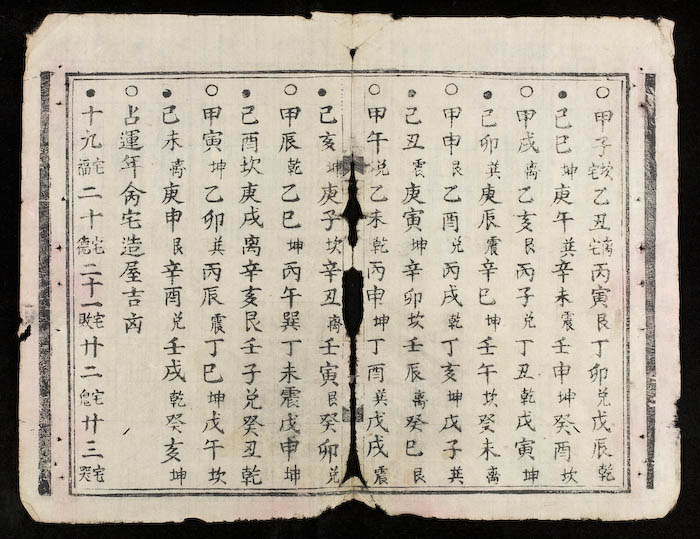 ○甲子坎宅乙丑离宅丙寅艮丁卯兑戊辰乾
●己巳坤庚午巽辛未震壬申坤癸酉坎
○甲戌离乙亥艮丙子兑丁丑乾戊寅坤
●己卯巽庚辰震辛巳坤壬午坎癸未离
○甲申艮乙酉兑丙戌乾丁亥坤戊子巽
●己丑震庚寅坤辛卯坎壬辰离癸巳艮
○甲午兑乙未乾丙申坤丁酉巽戊戌震
●己亥坤庚子坎辛丑离壬寅艮癸卯兑
○甲辰乾乙巳坤丙午巽丁未震戊申坤
●己酉坎庚戌离辛亥艮壬子兑癸丑乾
○甲寅坤乙卯巽丙辰震丁巳坤戊午坎
●己未离庚申艮辛酉兑壬戌乾癸亥坤
○占運年禽宅造屋吉凶
●十九宅福二十宅德二十一宅敗廿二宅鬼廿三宅哭